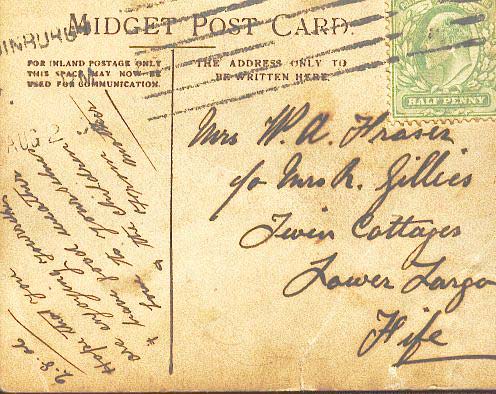 MIDGET POST CARD.
FOR INLAND POSTAGE ONLY
THIS SPACE MAY NOW BE
USED FOR COMMUNICATION.
THE ADDRESS ONLY TO
BE WRITTEN HERE.
HALF PENNY
AUG 2
Mrs W. A. Fraser
c/o Mrs R. Gillies
Twin Cottages
Lower Largo
Fife
2.8.06
Hope that you
are enjoying yourselves
& have good weather
love to yourself
& the children
from Mother